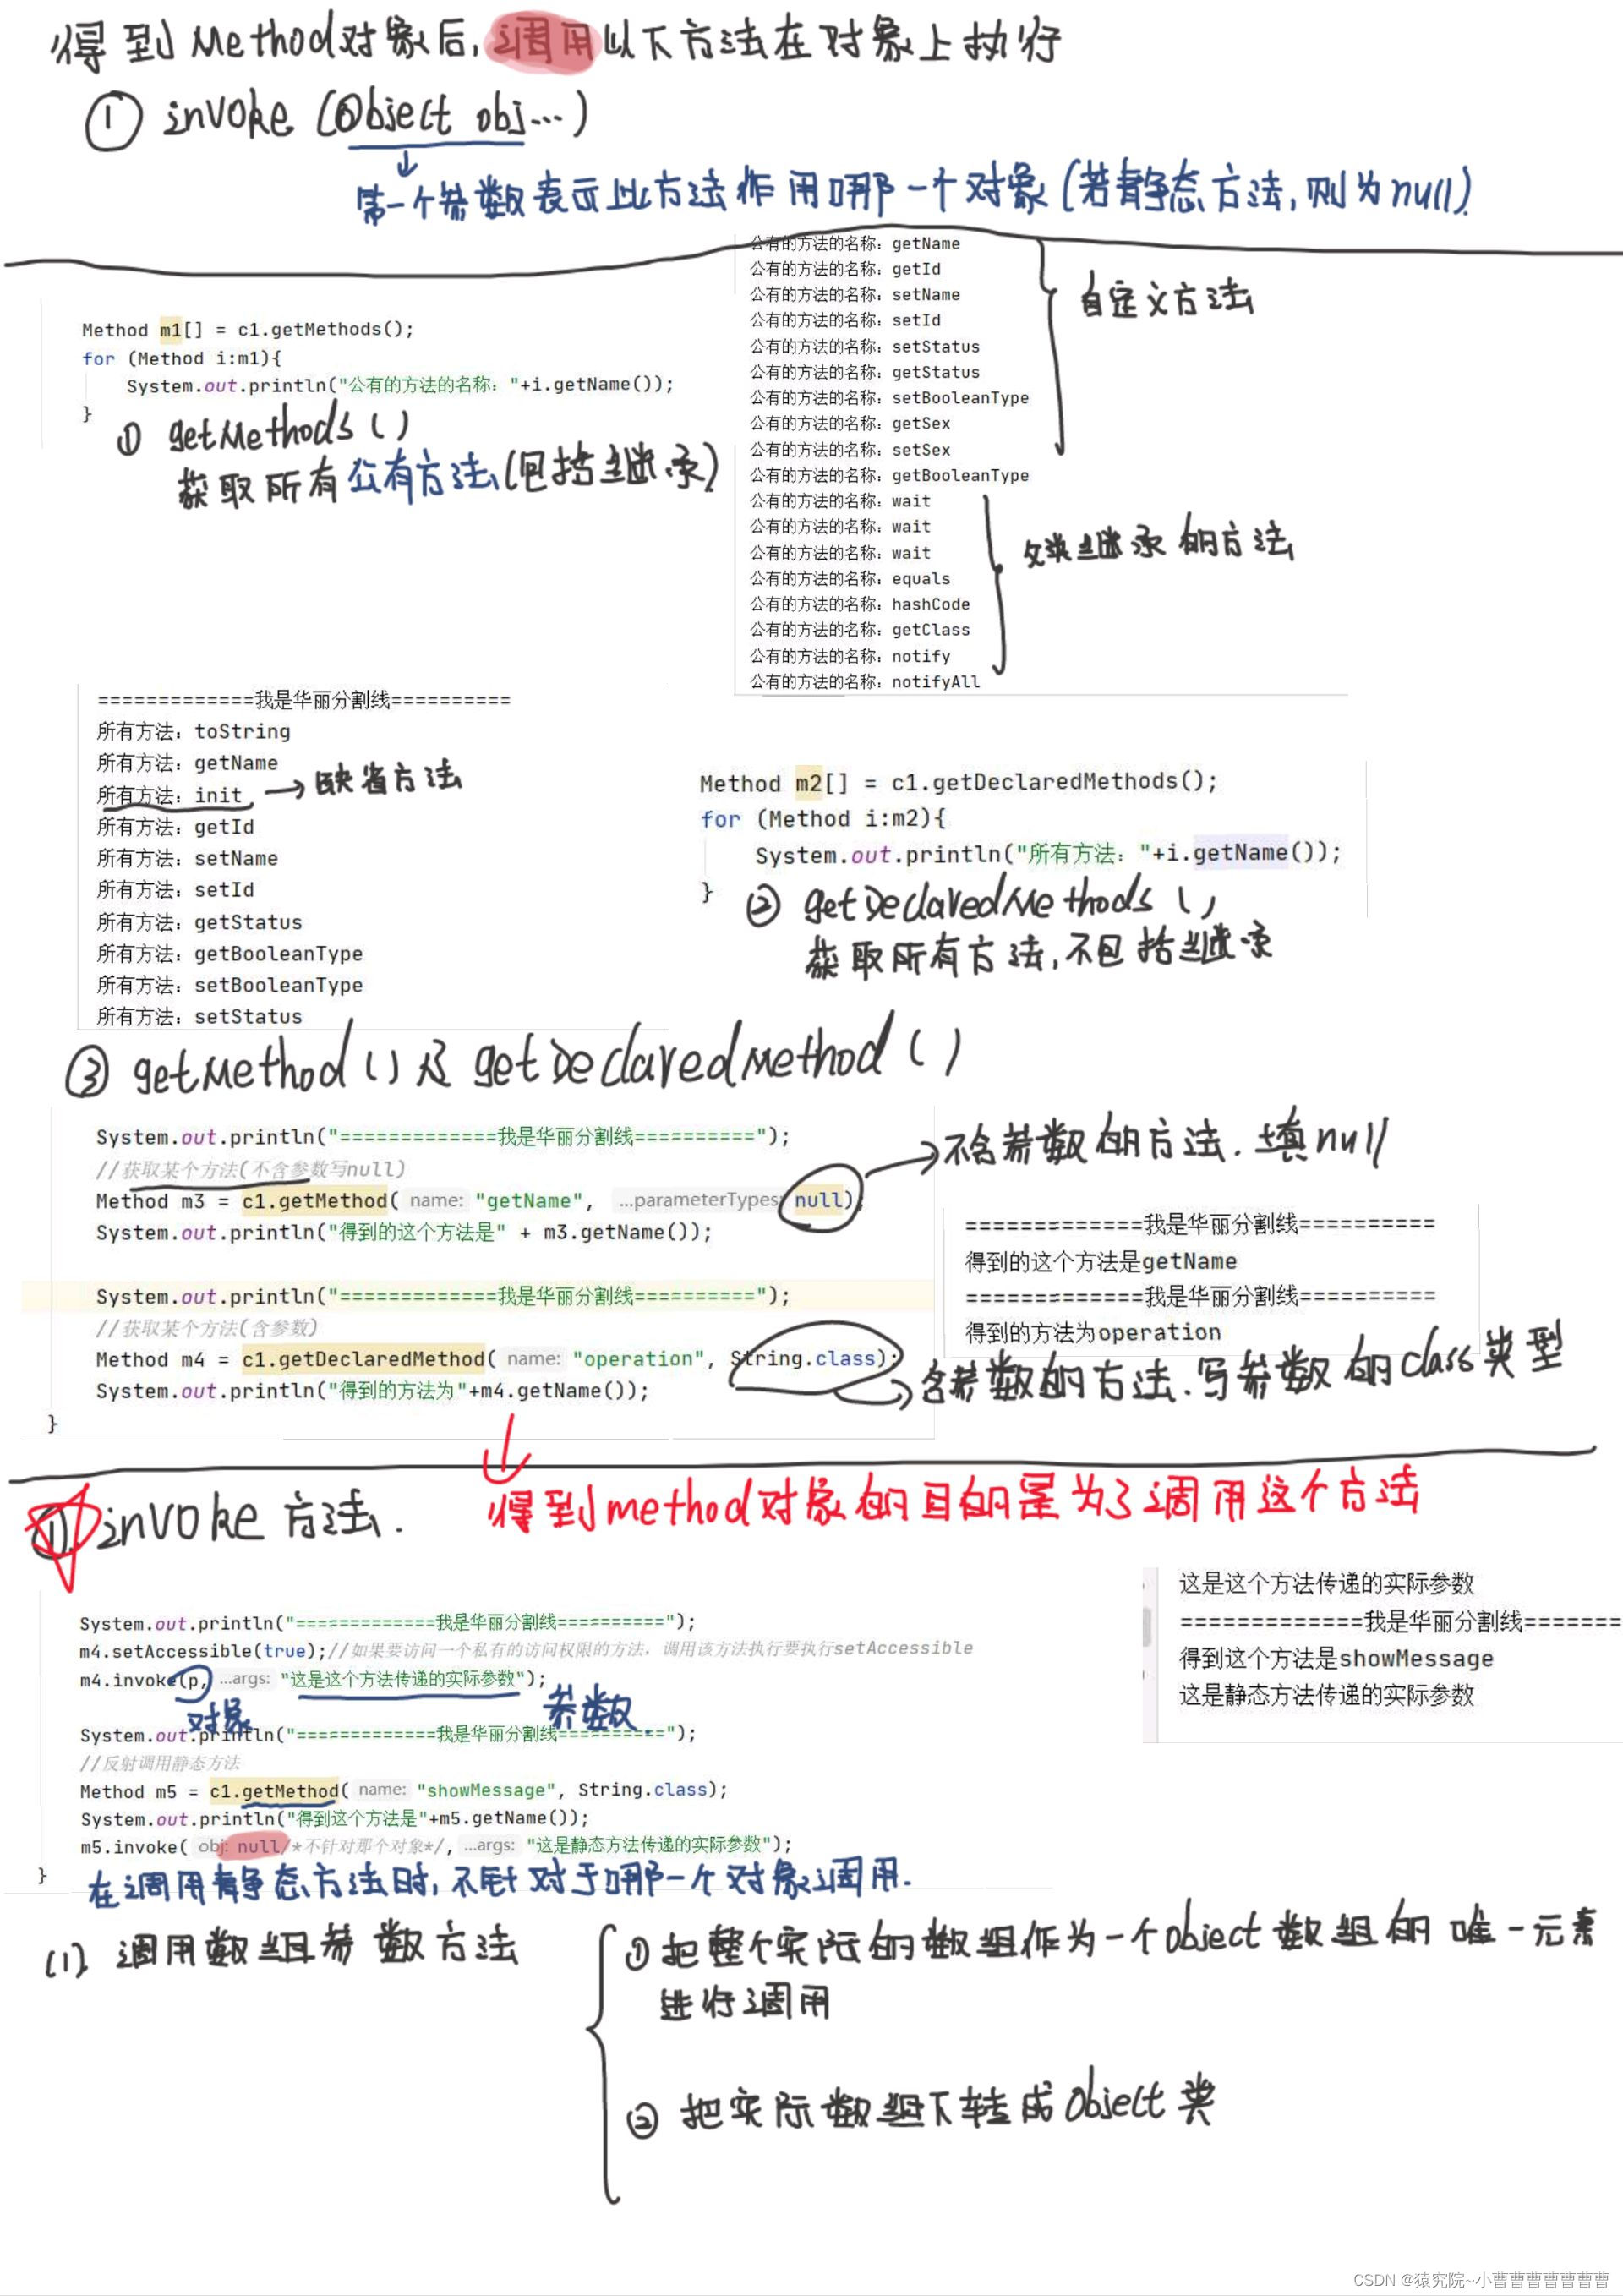 得到Method对象后,调用以下方法在对象上执行
① invoke (Object obj...)
第一个参数表示此方法作用哪一个对象(若静态方法,则为null)
Method m1[] = c1.getMethods();
for (Method i:m1){
System.out.println("公有的方法的名称："+i.getName());
}
① getMethods()
获取所有公有方法(包括继承)
公有的方法的名称：getName
公有的方法的名称：getId
公有的方法的名称：setName
公有的方法的名称：setId
公有的方法的名称：setStatus
公有的方法的名称：getStatus
公有的方法的名称：setBooleanType
公有的方法的名称：getSex
公有的方法的名称：setSex
公有的方法的名称：getBooleanType
公有的方法的名称：wait
公有的方法的名称：wait
公有的方法的名称：wait
公有的方法的名称：equals
公有的方法的名称：hashCode
公有的方法的名称：getClass
公有的方法的名称：notify
公有的方法的名称：notifyAll
自定义方法
父类继承的方法
=============我是华丽分割线==========
所有方法：toString
所有方法：getName
所有方法：init →缺省方法
所有方法：getId
所有方法：setName
所有方法：setId
所有方法：getStatus
所有方法：getBooleanType
所有方法：setBooleanType
所有方法：setStatus
Method m2[] = c1.getDeclaredMethods();
for (Method i:m2){
System.out.println("所有方法："+i.getName());
}
② getDeclaredMethods()
获取所有方法,不包括继承
③ getMethod()及getDeclaredMethod()
System.out.println("=============我是华丽分割线==========");
//获取某个方法(不含参数写null)
Method m3 = c1.getMethod( name: "getName", ...parameterTypes: null);
System.out.println("得到的这个方法是" + m3.getName());
System.out.println("=============我是华丽分割线==========");
//获取某个方法(含参数)
Method m4 = c1.getDeclaredMethod( name: "operation", String.class);
System.out.println("得到的方法为"+m4.getName());
}
→不含参数的方法.填null
=============我是华丽分割线==========
得到的这个方法是getName
=============我是华丽分割线==========
得到的方法为operation
→含参数的方法.写参数的class类型
得到method对象的目的是为了调用这个方法
① invoke方法.
System.out.println("=============我是华丽分割线==========");
m4.setAccessible(true);//如果要访问一个私有的访问权限的方法，调用该方法执行要执行setAccessible
m4.invoke(p, ...args: "这是这个方法传递的实际参数");
对象 参数
System.out.println("=============我是华丽分割线==========");
//反射调用静态方法
Method m5 = c1.getMethod( name: "showMessage", String.class);
System.out.println("得到这个方法是"+m5.getName());
m5.invoke( obj: null/*不针对那个对象*/, ...args: "这是静态方法传递的实际参数");
}
在调用静态方法时,不针对于哪一个对象调用.
这是这个方法传递的实际参数
=============我是华丽分割线=======
得到这个方法是showMessage
这是静态方法传递的实际参数
(1) 调用数组参数方法
① 把整个实际的数组作为一个Object数组的唯一元素
进行调用
② 把实际数组下转成Object类
CSDN @猿究院~小曹曹曹曹曹曹曹